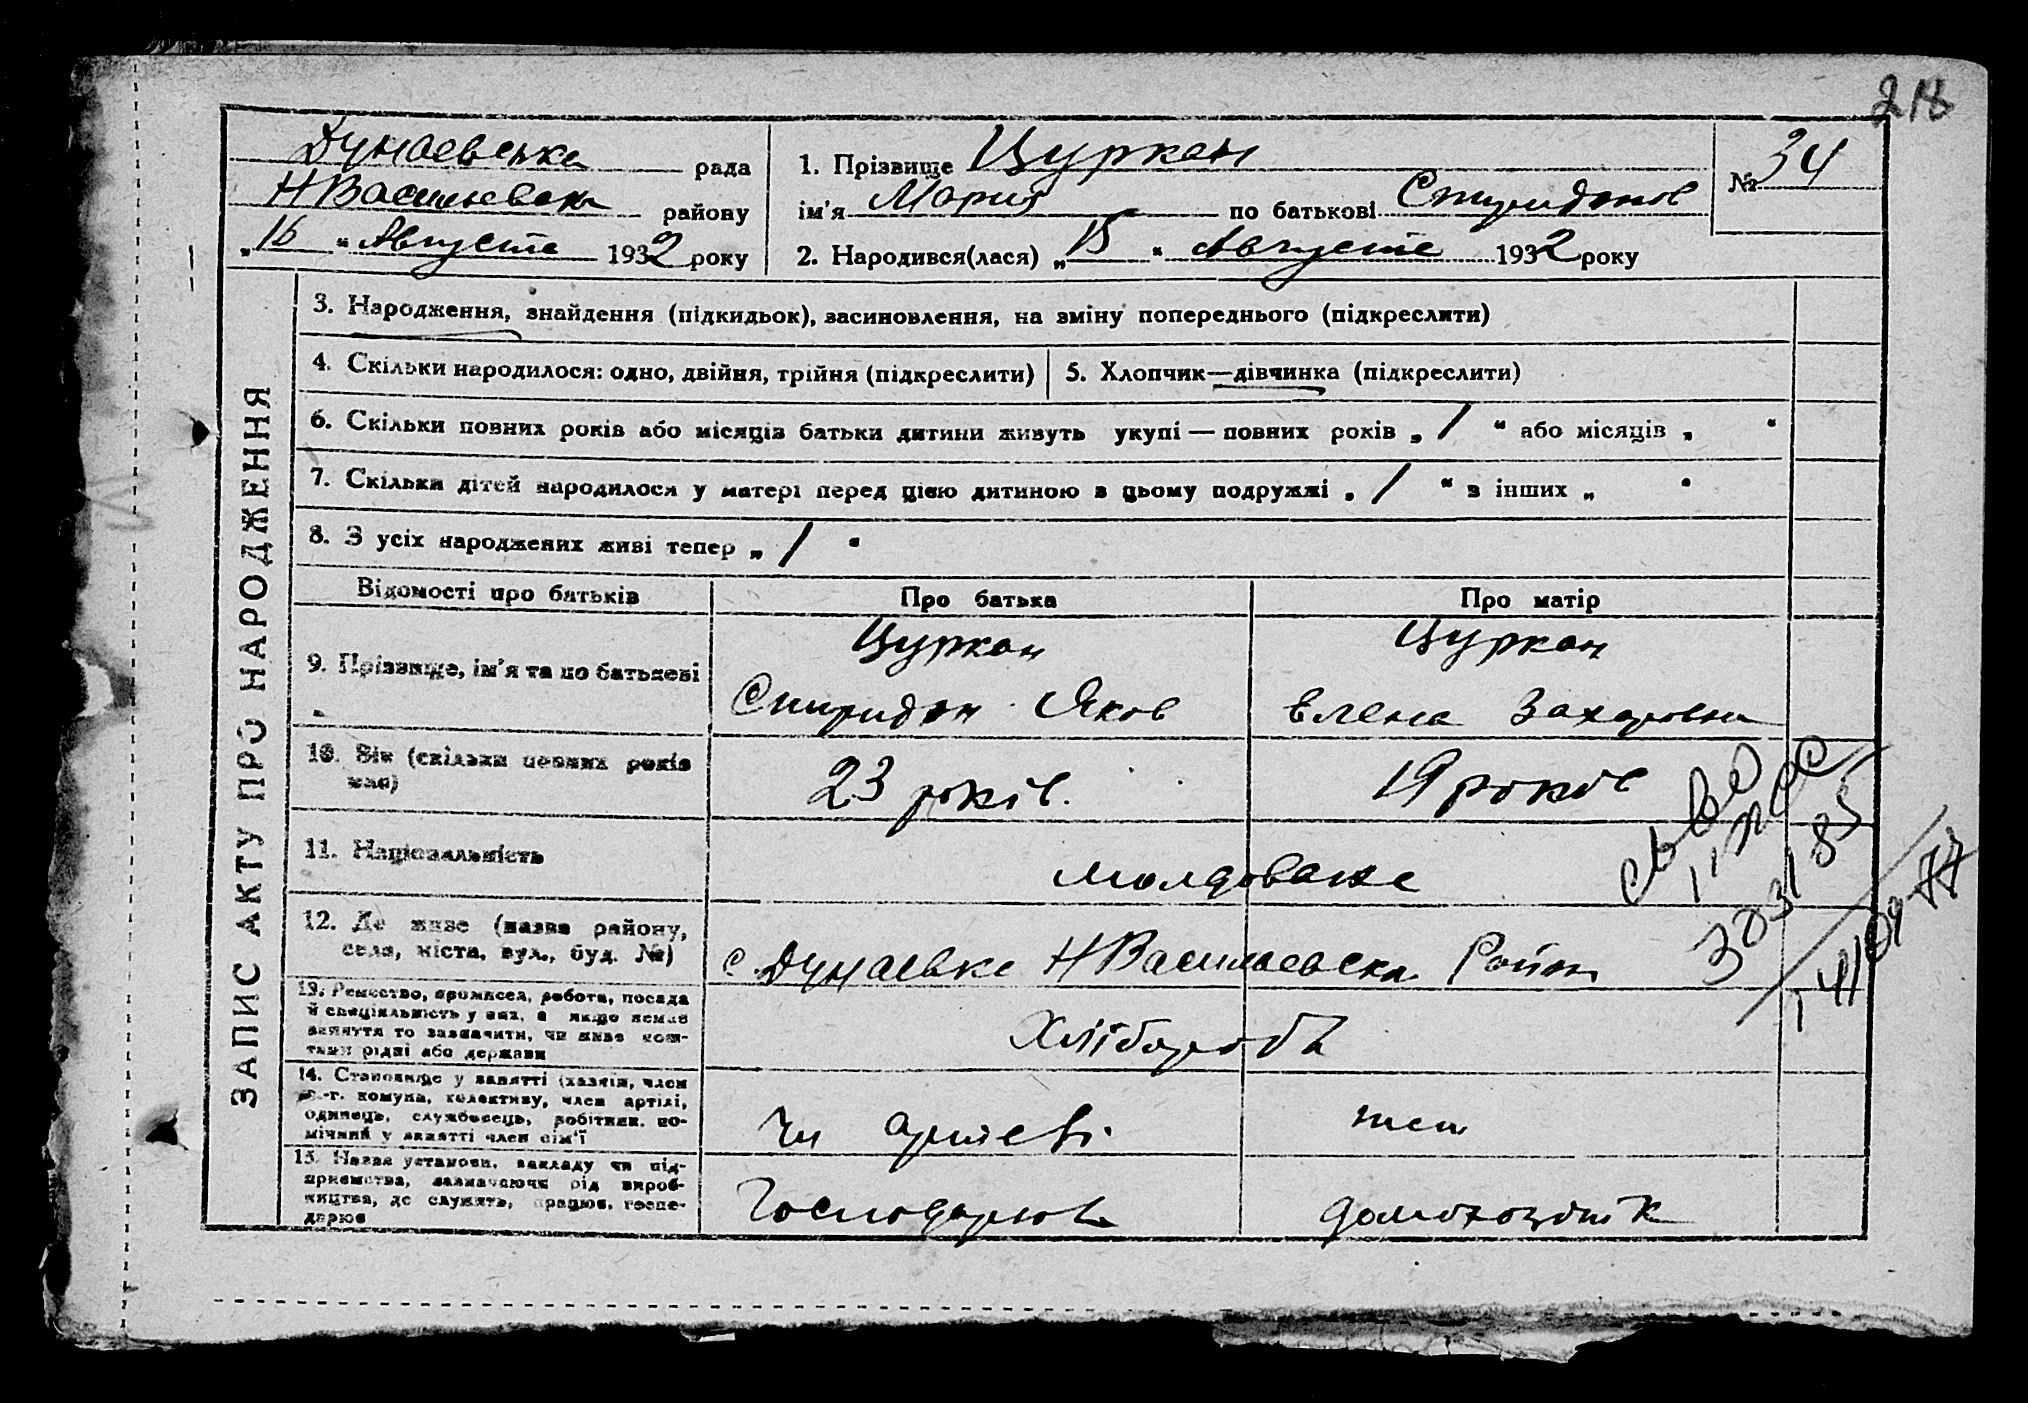 218
Дунаевська рада
НВасильевськ району
„16“ Августа 1932 року
1. Прізвище Цуркан
ім'я Мария по батькові Спиридонов
№ 34
2. Народився(лася) „15“ Августа 1932 року
ЗАПИС АКТУ ПРО НАРОДЖЕННЯ
3. Народження, знайдення (підкидьок), засиновлення, на зміну попереднього (підкреслити)
4. Скільки народилося: одно, двійня, трійня (підкреслити)
5. Хлопчик—дівчинка (підкреслити)
6. Скільки повних років або місяців батьки дитини живуть укупі — повних років „ / “ або місяців „ “
7. Скільки дітей народилося у матері перед цією дитиною в цьому подружжі „ / “ в інших „ “
8. З усіх народжених живі тепер „ / “
Відомості про батьків
Про батька
Про матір
9. Прізвище, ім'я та по батькові
Цуркан
Спиридон Яков
Цуркан
Елена Захаровна
10. Вік (скільки повних років
має)
23 років.
19 років
11. Національність
молдоване
12. Де живе (назва району,
села, міста, вул., буд. №)
с. Дунаевке НВасильевска Район
13. Ремество, промисел, робота, посада
й спеціяльність у них, а якщо немає
заняття то зазначити, чи живе кош-
тами рідні або держави
Хлібороб
14. Становище у занятті (хазяїн, член
с.-г. комуни, колективу, член артілі,
одинець, службовець, робітник, по-
мічний у занятті член сім'ї
Чл артеві
теж
15. Назва установи, закладу чи під-
приємства, зазначаючи рід вироб-
ництва, де служить, працює, госпо-
дарює